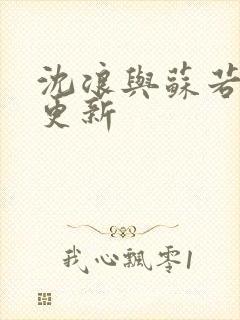 沈浪與蘇若
更新
我心飄零1